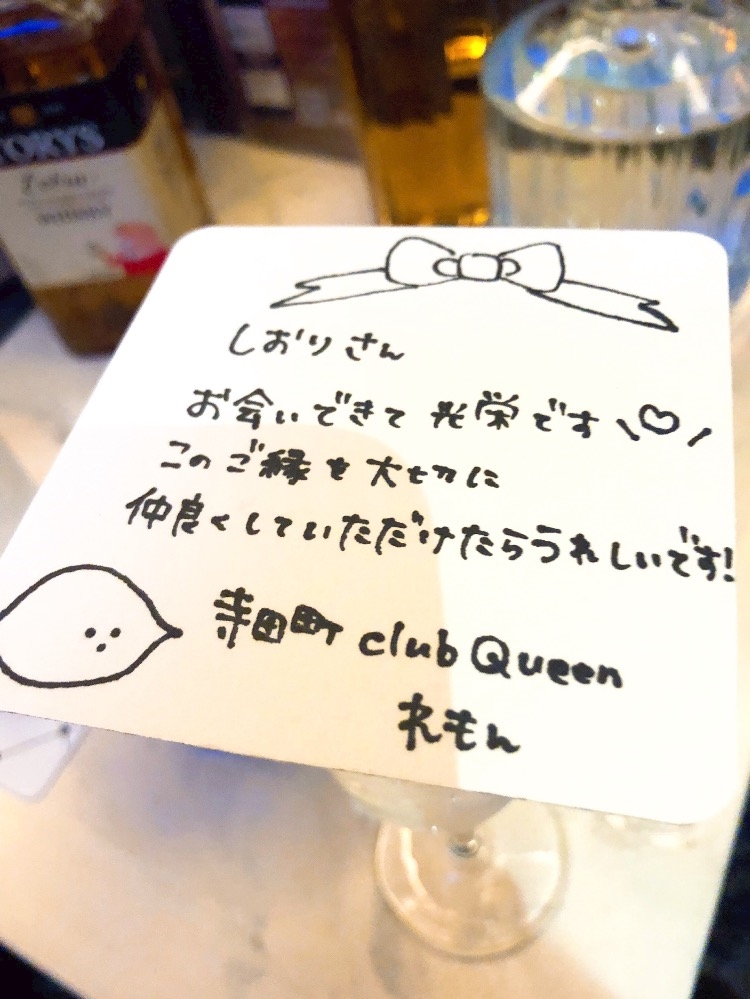 TORYS
しおりさん
お会いできて光栄です
このご縁を大切に
仲良くしていただけたらうれしいです!
寺田町 club Queen
れもん